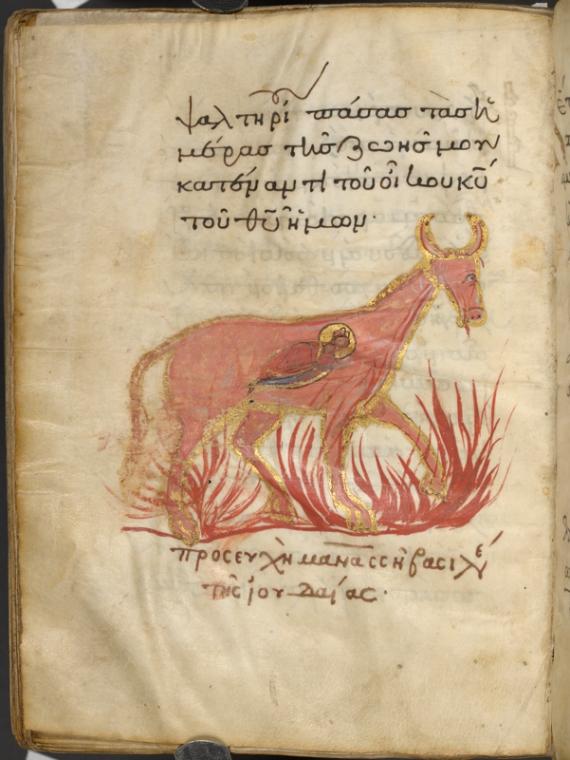 ψαλτηρί πάσας τὰς ἡ
μέρας τῆς ζωῆς μου
κατέναντι τοῦ οἴκου κ̅υ̅
τοῦ θ̅υ̅ ἡμῶν·
προσευχὴ μανασσῆ βασιλέ
τῆς ἰουδαίας·